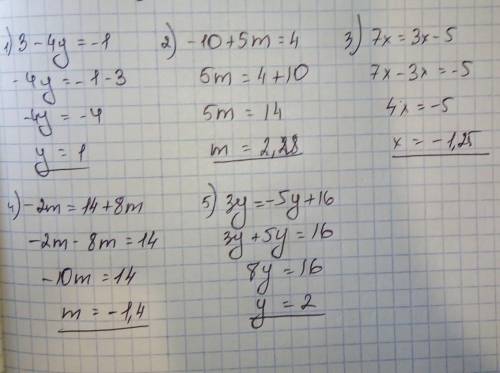 1) 3 - 4y = -1
-4y = -1 - 3
-4y = -4
y = 1
2) -10 + 5m = 4
5m = 4 + 10
5m = 14
m = 2,28
3) 7x = 3x - 5
7x - 3x = -5
4x = -5
x = -1,25
4) -2m = 14 + 8m
-2m - 8m = 14
-10m = 14
m = -1,4
5) 3y = -5y + 16
3y + 5y = 16
8y = 16
y = 2